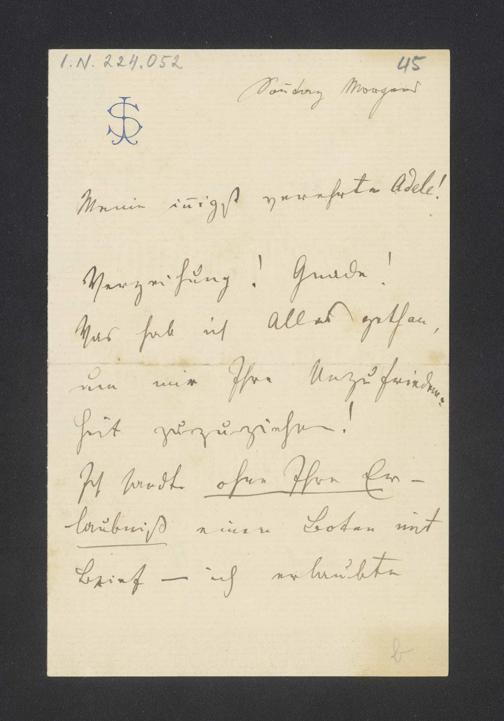 I.N. 224.052
45
Sonntag Morgens
JS
Meine innigst verehrte Adele!
Verzeihung! Gnade!
Was hab ich Alles gethan,
um mir Ihre Unzufrieden-
heit zuzuziehen!
Ich sandte ohne Ihre Er-
laubniß einen Boten mit
Brief — ich erlaubte
b